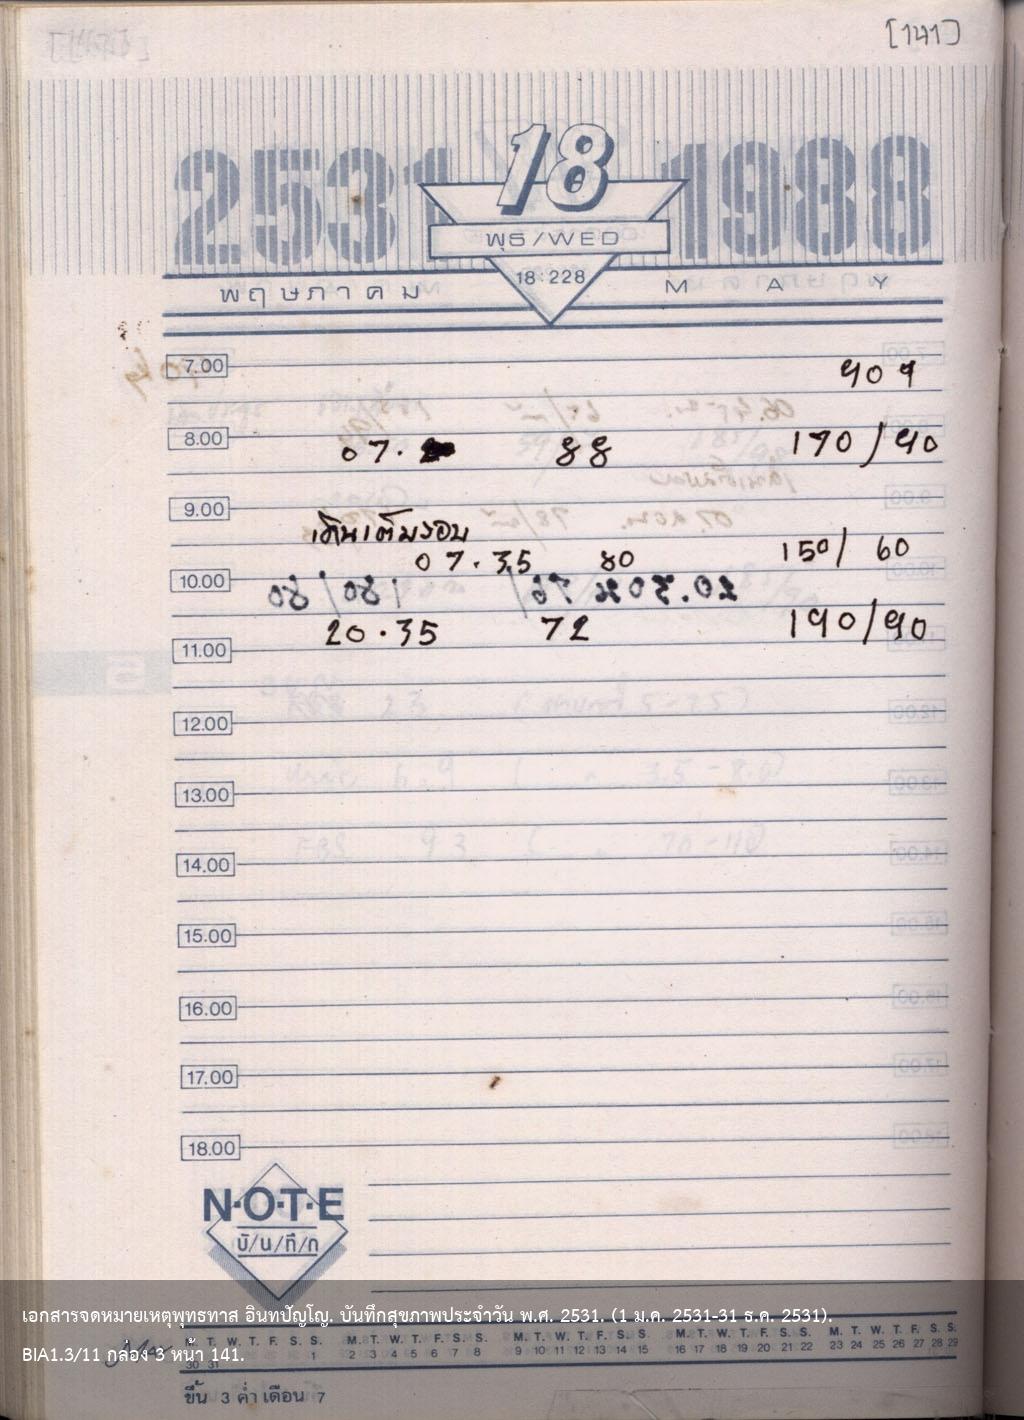 [141]
2531 18 1988
พุธ/WED
18:228
พฤษภาคม MAY
7.00
8.00 07. 88 170/90
9.00
เดินเต็มรอบ
07.35 80 150/60
10.00
20.35 72 190/90
11.00
12.00
13.00
14.00
15.00
16.00
17.00
18.00
N·O·T·E
บั/น/ทึ/ก
เอกสารจดหมายเหตุพุทธทาส อินทปัญโญ. บันทึกสุขภาพประจำวัน พ.ศ. 2531. (1 ม.ค. 2531-31 ธ.ค. 2531).
M. T. W. T. F. S. S. M. T. W. T. F. S. S. M. T. W. T. F. S. S. M. T. W. T. F. S. S. M. T. W. T. F. S. S.
1 2 3 4 5 6 7 8 9 10 11 12 13 14 15 16 17 18 19 20 21 22 23 24 25 26 27 28 29
BIA1.3/11 กล่อง 3 หน้า 141.
30 31
ขึ้น 3 ค่ำ เดือน 7